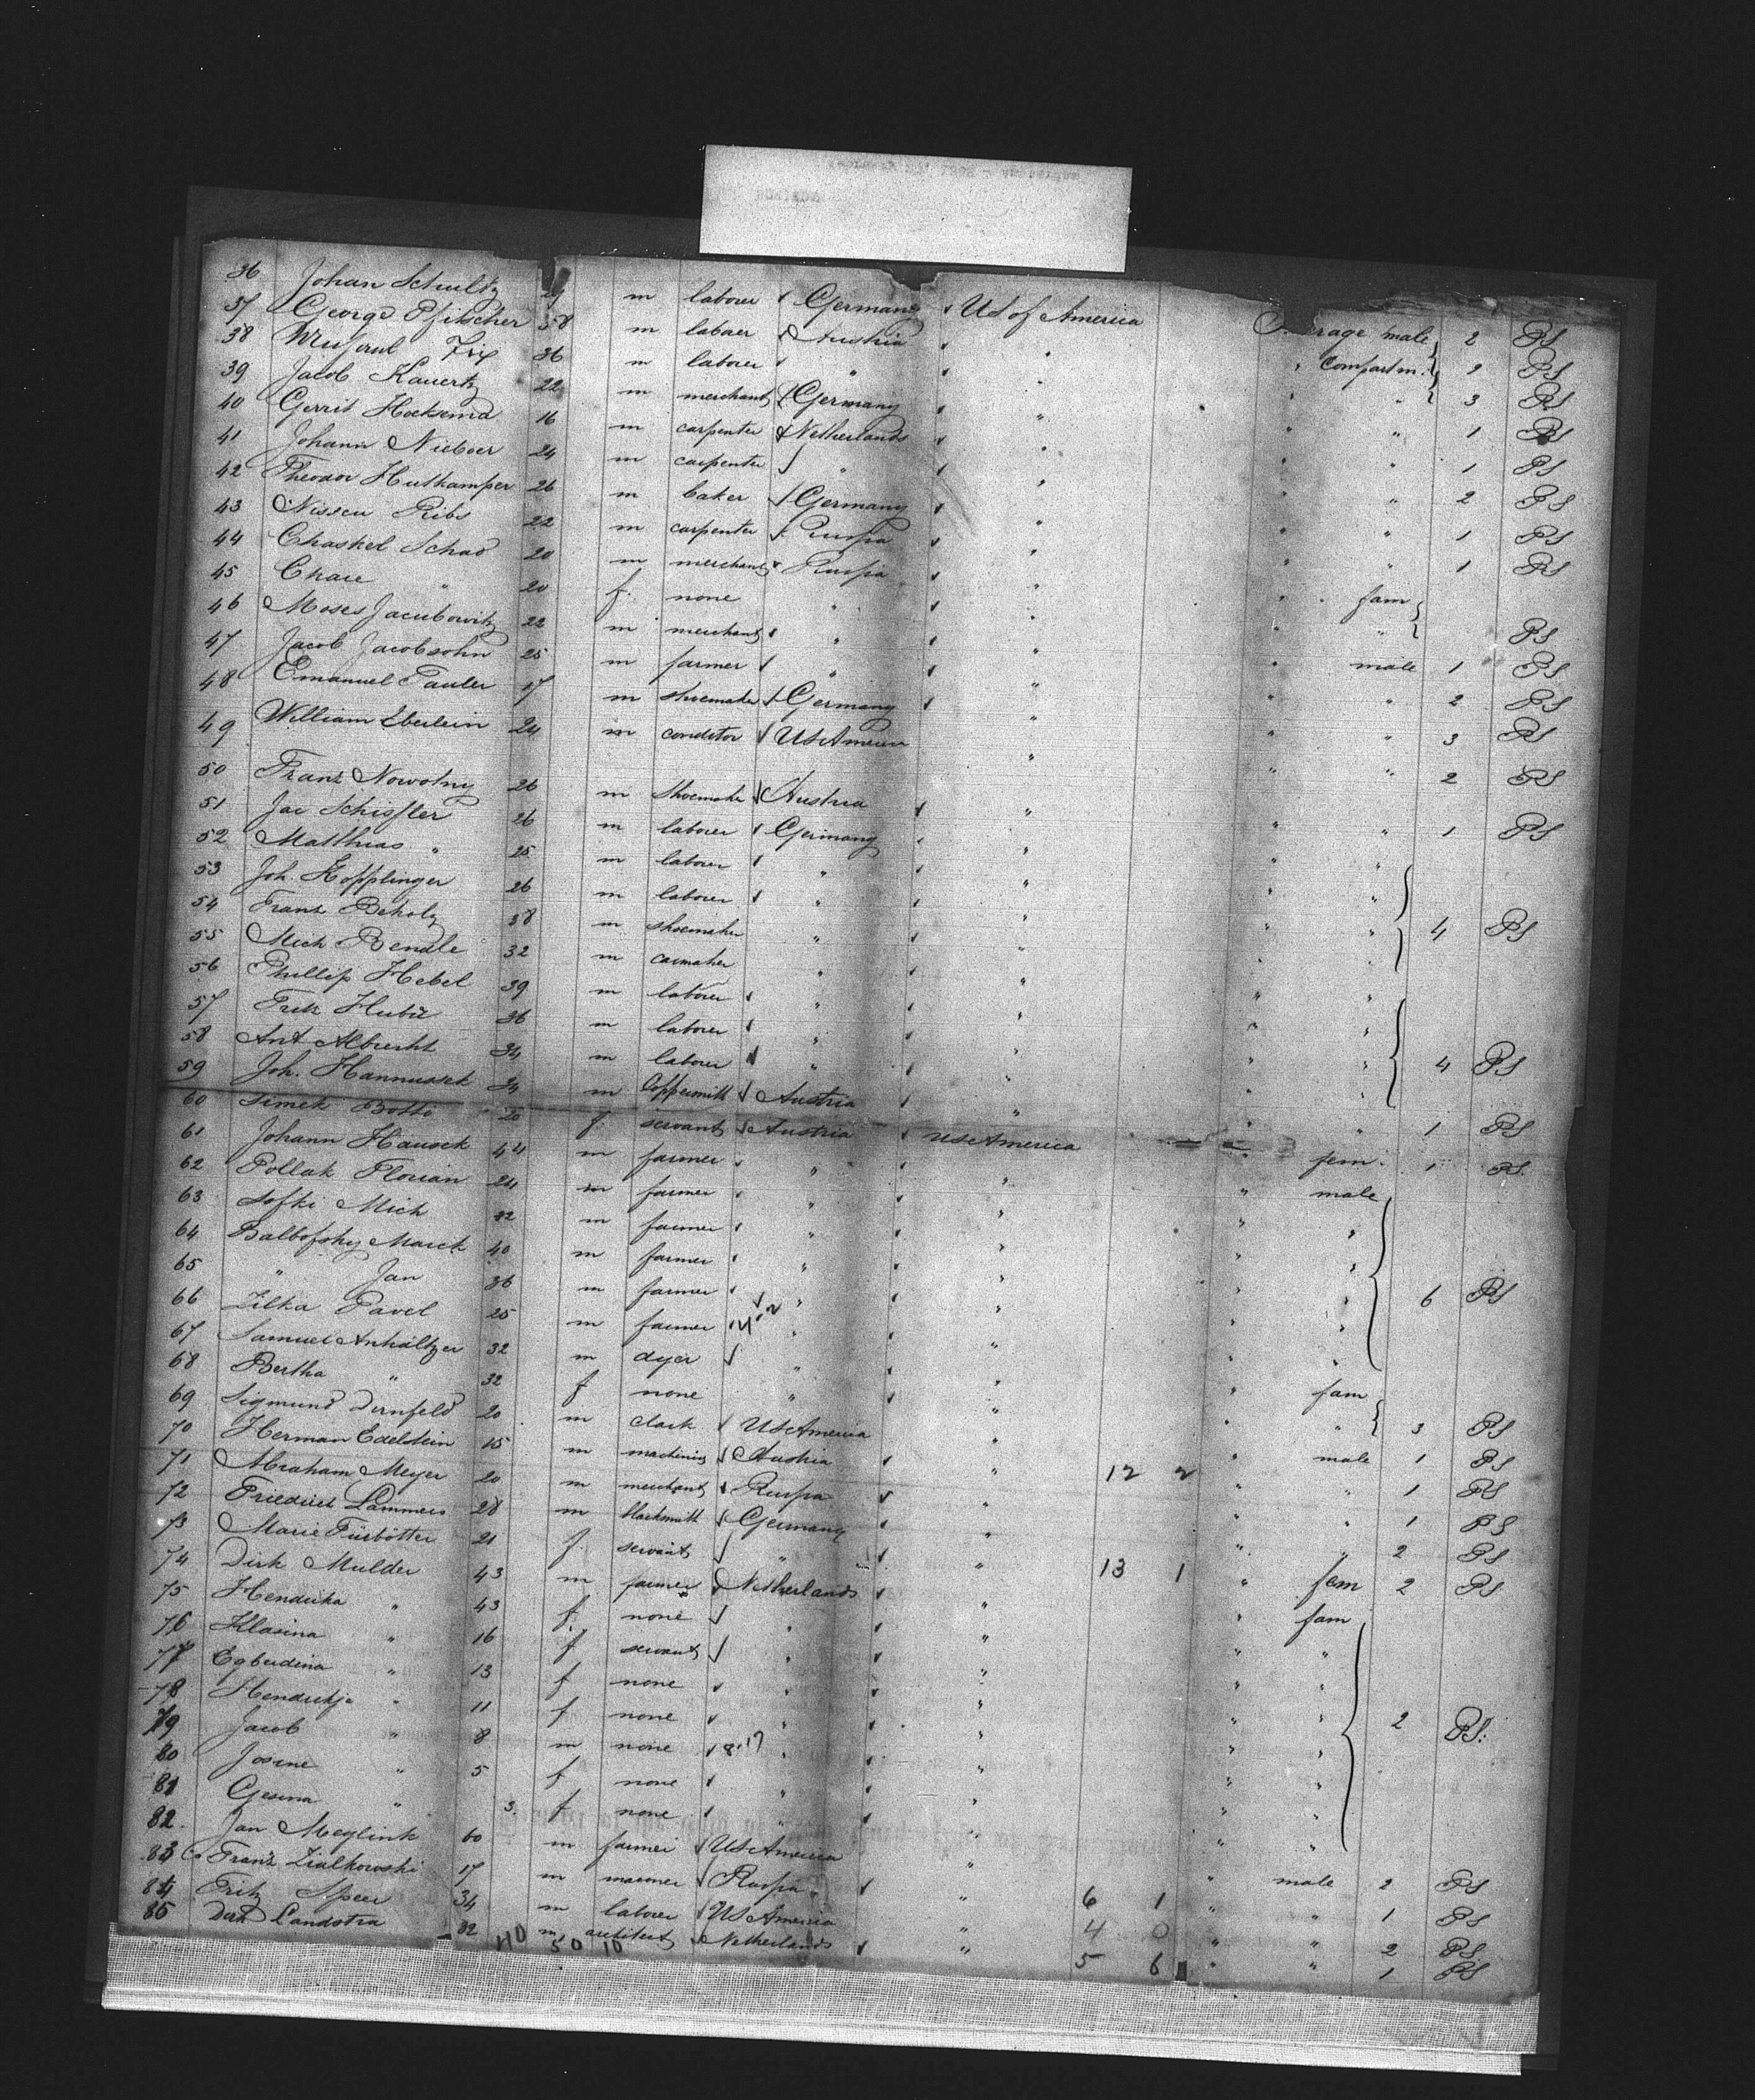 36 Johan Schultz m laborer Germany US of America male 2 PS
37 George Pfitscher 38 m laborer Austria " " Compartm. 2 PS
38 Frix 36 m laborer " " " " 3 PS
39 Jacob Kauertz 22 m merchant Germany " " " 1 PS
40 Gerrit Hoeksema 16 m carpenter Netherlands " " " 1 PS
41 Johann Nieboer 24 m carpenter " " " " 2 PS
42 Theodor Huthamper 26 m baker Germany " " " 1 PS
43 Nissen Ribs 22 m carpenter Russia " " " 1 PS
44 Chaskel Schad 20 m merchant Russia " " fam
45 Chaie " 20 f. none " " " " PS
46 Moses Jacubowitz 22 m merchant " " " male 1 PS
47 Jacob Jacobsohn 25 m farmer " " " " 2 PS
48 Emanuel Pauler 17 m shoemaker Germany " " " 3 PS
49 William Eberlein 24 m conditor US America " " " 2 PS
50 Franz Nowotny 26 m shoemaker Austria " " " 1 PS
51 Jac Schissler 26 m laborer Germany " " "
52 Matthias " 25 m laborer " " " "
53 Joh. Kopplinger 26 m laborer " " " " 4 PS
54 Franz Beholz 38 m shoemaker " " "
55 Mich Bendle 32 m " " " "
56 Phillip Hebel 39 m laborer " " " "
57 Fritz Hubie 36 m laborer " " " " 4 PS
58 Ant Albrecht 34 m laborer " " " "
59 Joh. Hannussek 24 m Coppersmith Austria " " " 1 PS
60 Simek Botti 20 f. servant Austria US America " fem. 1 PS.
61 Johann Hausek 44 m farmer " " " male
62 Pollak Florian 24 m farmer " " " "
63 Sofki Mich 32 m farmer " " " "
64 Balbofsky Marek 40 m farmer " " " " 6 PS
65 " Jan 36 m farmer " " " "
66 Zilka Pavel 25 m farmer " " " "
67 Samuel Anhaltzer 32 m dyer " " " fam
68 Bertha " 32 f none " " " " 3 PS
69 Sigmund Dernfeld 20 m clark US America " 12 2 " male 1 PS
70 Herman Edelstein 15 m machinist Austria " " " 1 PS
71 Abraham Meyer 20 m merchant Russia " " " 1 PS
72 Friedrich Lammers 28 m blacksmith Germany " " " 2 PS
73 Marie Fürbötter 21 f. servant " " 13 1 " fem 2 PS
74 Dirk Mulder 43 m farmer Netherlands " " fam
75 Hendrika " 43 f. none " " " "
76 Klasina " 16 f servant " " " "
77 Egberdina " 13 f none " " " "
78 Hendrikje " 11 f none " " " " 2 PS.
79 Jacob " 8 m none " " " "
80 Josine " 5 f none " " " "
81 Gesina " 3. f none " " " "
82. Jan Meglink 60 m farmer US America " 6 1 " male 2 PS
83 Franz Zialkowski 17 m Russia " 4 0 " " 1 PS
84 Fritz Speer 34 m laborer US America " 5 6 " " 2 PS
85 Dirk Landstra 32 m architect Netherlands " " " 1 PS
110 50 10